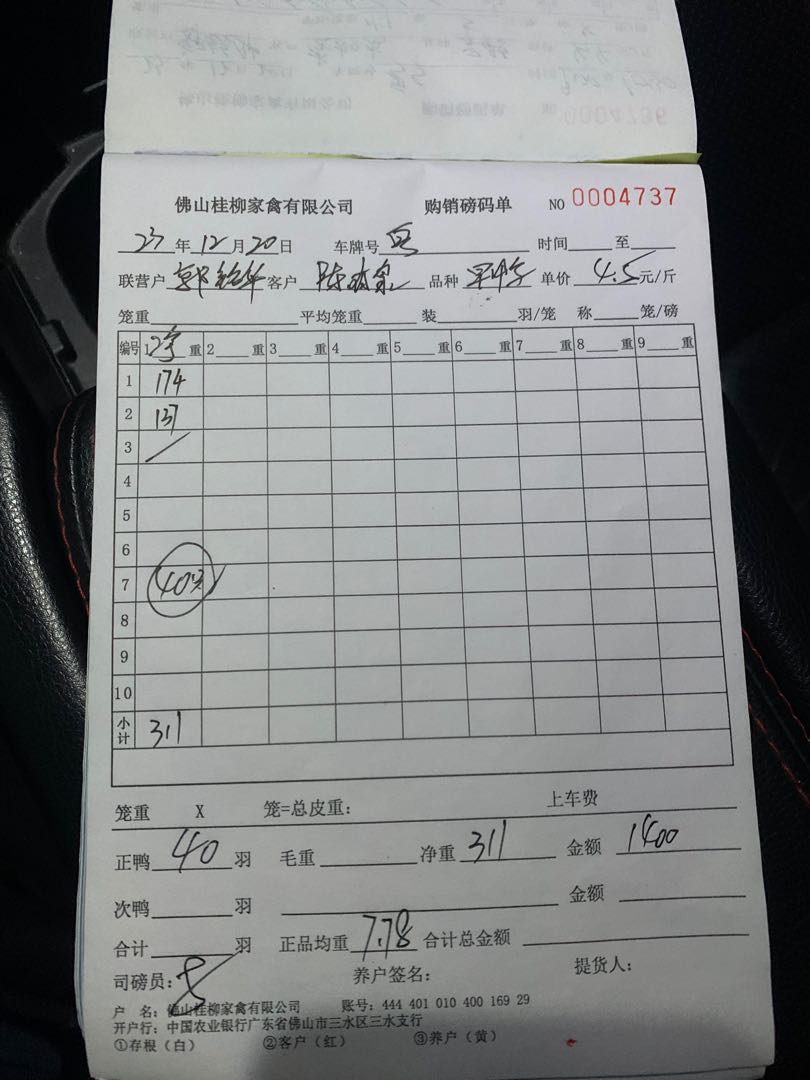 0004736
佛山桂柳家禽有限公司 购销磅码单 NO 0004737
23年12月20日 车牌号 时间 至
联营户 客户 陈 品种 单价 4.5元/斤
笼重 平均笼重 装 羽/笼 称 笼/磅
编号 1 重 2 重 3 重 4 重 5 重 6 重 7 重 8 重 9 重
1 174
2 137
3
4
5
6
7 40
8
9
10
小计 311
笼重 X 笼=总皮重: 上车费
正鸭 40 羽 毛重 净重 311 金额 1400
次鸭 羽 金额
合计 羽 正品均重 7.78 合计总金额
司磅员: 养户签名: 提货人:
户 名: 佛山桂柳家禽有限公司 账号: 444 401 010 400 169 29
开户行: 中国农业银行广东省佛山市三水区三水支行
①存根（白） ②客户（红） ③养户（黄）